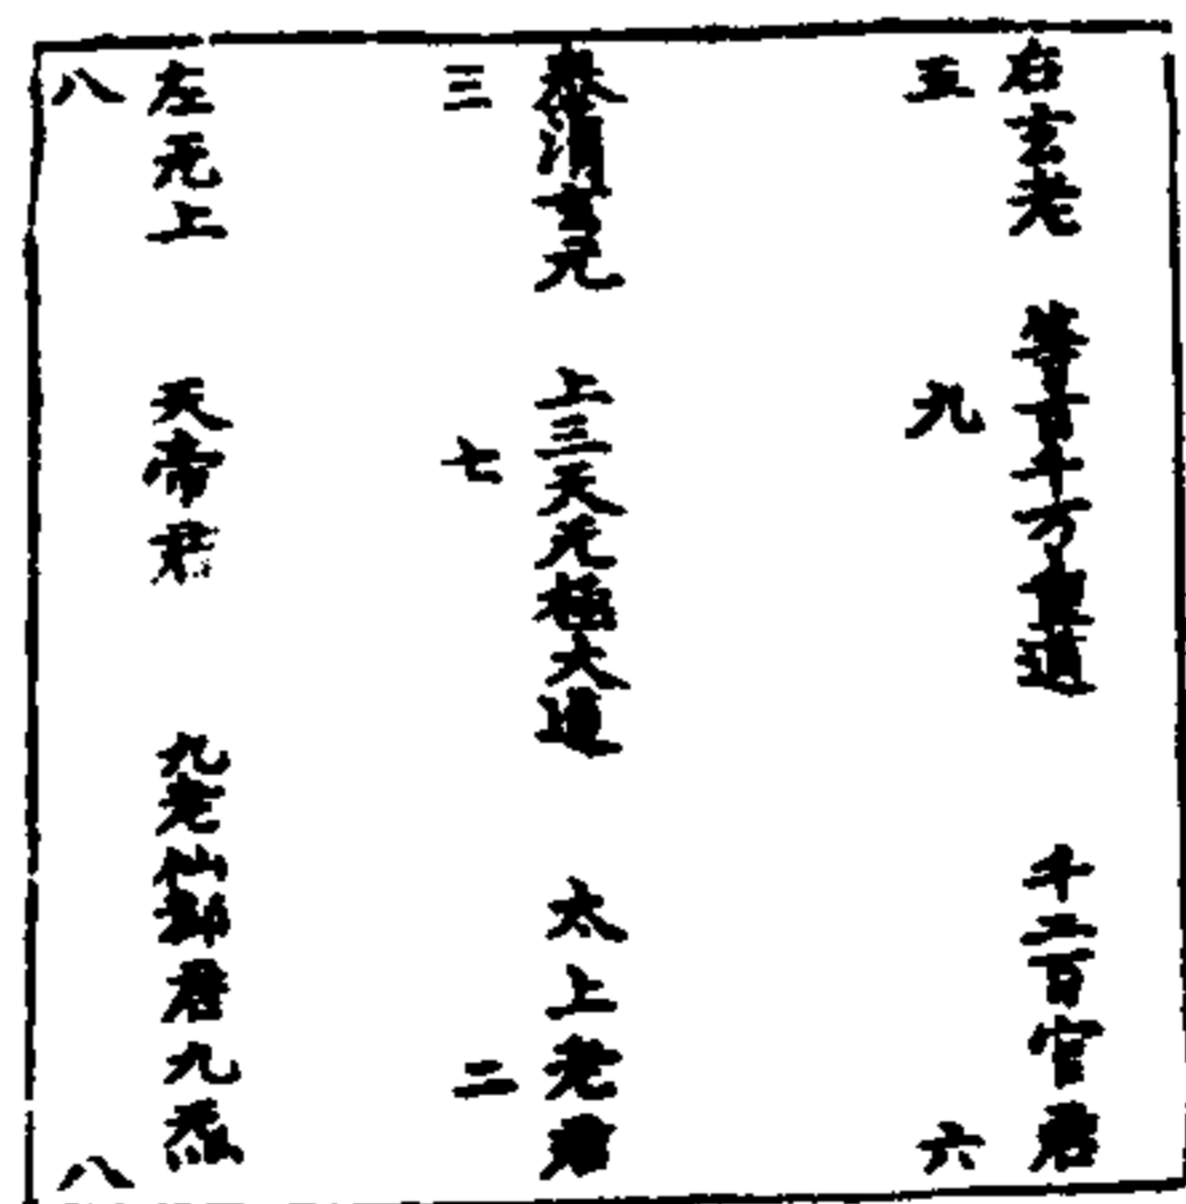 右玄老 等百千万重道 千二百官君
五 九 六
泰清玄元 上三天无極大道 太上老君
三 七 二
左无上 天帝君 九老仙都君九炁
八 八